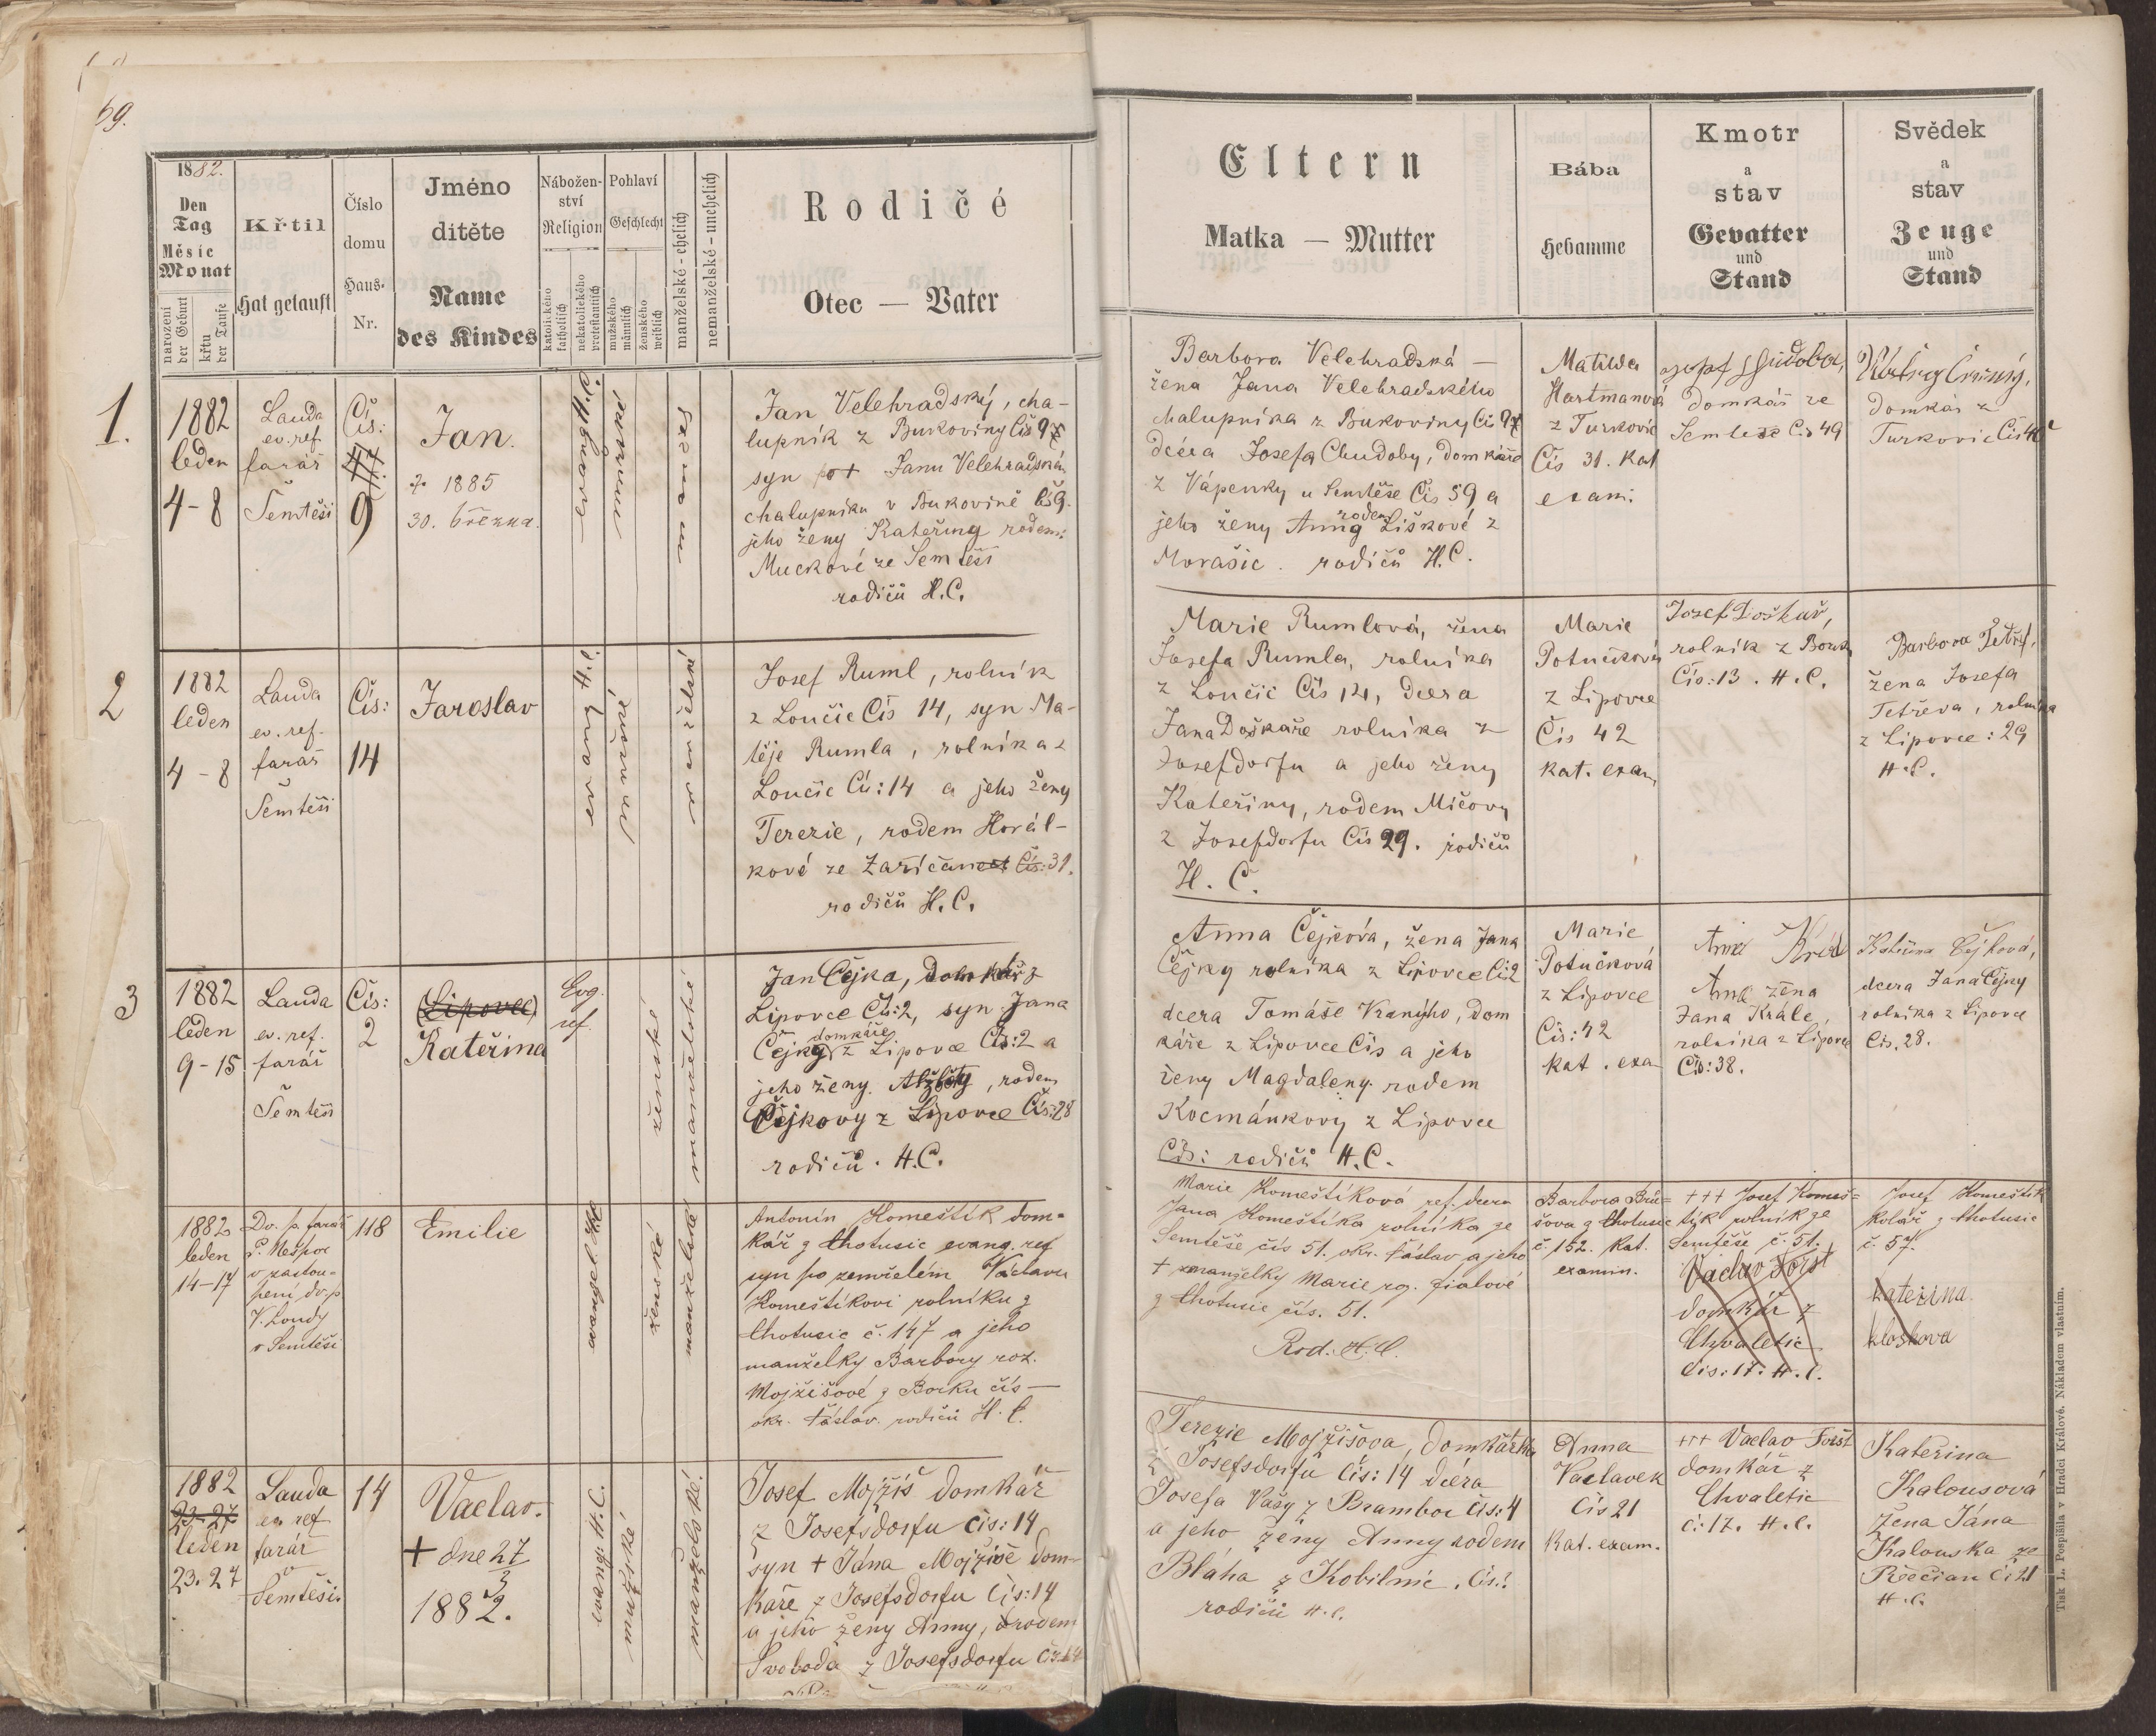 69.
1882.
Den
Tag
Měsíc
Monat
narození
der Geburt
křtu
der Taufe
Křtil
Hat getauft
Číslo
domu
Haus-
Nr.
Jméno
dítěte
Name
des Kindes
Nábožen-
ství
Religion
katolického
katholisch
nekatolického
protestantisch
Pohlaví
Geschlecht
mužského
männlich
ženského
weiblich
manželské - ehelich
nemanželské - unehelich
Rodičé
Otec — Vater
Eltern
Matka — Mutter
Bába
Hebamme
Kmotr
a
stav
Gevatter
und
Stand
Svědek
a
stav
Zeuge
und
Stand
1.
1882
leden
4-8
Lauda
ev. ref.
farář
Semtěši
Čís:
9
Jan.
1885
30. března.
Jan Velehradský, cha-
lupník z Bukoviny Čís 9
syn Janu Velehradském
chalupníku v Bukovině Čís 9.
jeho ženy Kateřiny rodem:
Muckové ze Semtěši
rodičů H.C.
Barbora Velehradská —
žena Jana Velehradského
chalupníka z Bukoviny Čís 9
dcera Josefa Chudoby, domkáře
z Vápenky u Semtěše Čís 59 a
jeho ženy Anny rodem Liškové z
Morašic. rodičů H.C.
Matilda
Hartmanová
z Turkovic
Čís 31. kat
exam.
domkář ze
Semteše Čís 49
domkár z
Turkovic Čís
2
1882
leden
4-8
Lauda
ev. ref.
farář
Semtěši
Čís:
14
Jaroslav
Josef Ruml, rolník
z Loučic Čís 14, syn Ma-
těje Rumla, rolníka z
Loučic Čís: 14 a jeho ženy
Terezie, rodem Horál-
kové ze Zaříčan Čís: 31.
rodičů H.C.
Marie Rumlová, žena
Josefa Rumla, rolníka
z Loučic Čís 14, dcera
Jana Doškaře rolníka z
Josefdorfu a jeho ženy
Kateřiny, rodem Mičovy
z Josefdorfu Čís 29. rodičů
H. C.
Marie
Potučková
z Lipovce
Čís 42
kat. exam,
Josef Doškař,
rolník z
Čís: 13. H.C.
Barbora
žena Josefa
Tetřeva, rolníka
z Lipovce: 29
H.C.
3
1882
leden
9-15
Lauda
ev. ref.
farář
Semtěši
Čís:
2
(Lipovec)
Kateřina
Evg.
ref.
ženské
manželské
Jan Čejka, domkář z
Lipovce Čís: 2, syn Jana
Čejky domkáře z Lipovce Čís: 2 a
jeho ženy Alžběty, rodem
Čejkovy z Lipovce Čís: 28
rodičů. H.C.
Anna Čejková, žena Jana
Čejky rolníka z Lipovce Čís 2
dcera Tomáše, dom
káře z Lipovce Čís a jeho
ženy Magdaleny rodem
Kocmánkovy z Lipovce
Čís: rodičů H.C.
Marie
Potučková
z Lipovce
Čís: 42
kat. exa
Anna
Anna žena
Jana Krále,
rolníka z Lipovce
Čís: 38.
Kateřina Čejková,
dcera Jana Čejky
rolníka z Lipovce
Čís. 28.
1882
leden
14-17
Dv. p. farář
v zastou-
pení dv. p
v Semtěši
118
Emilie
ženské
manželské
Antonín Homeštík dom-
kář z Chotusic evang. ref
syn po zemřelém Václavu
Homeštíkovi rolníku z
Chotusic č. 147 a jeho
manželky Barbory roz.
Mojžíšové z Borku čís —
okr. Čáslav. rodičů H.C.
Marie Homeštíková ref. dcera
Jana Homeštíka rolníka ze
Semtěše čís 51. okr. Čáslav a jeho
+ manželky Marie roz. Fialové
z Chotusic čís. 51.
Rod. H.C.
Barbora
z Chotusic
č. 152. kat.
examin.
+++ Josef Homeš-
tík rolník ze
Semtěše č. 51.
Václav Foršt
domkář z
Chvaletic
čís: 17. H.C.
Josef Homeštík
kolář z Chotusic
č. 57.
Kateřina
1882
23-27
leden
23. 27
Lauda
ev. ref
farář
v
Semtěši
14
Vaclav.
+ dne 27/3
1882.
evang: H.C.
mužské
manželské.
Josef Mojžíš domkář
z Josefsdorfu čís: 14
syn + Jána Mojžíše dom-
káře z Josefsdorfu Čís: 14
a jeho ženy Anny, rodem
Svoboda z Josefsdorfu Čís 14
Terezie Mojžišova, domkářka
z Josefsdorfu čís: 14 dcéra
Josefa Vášy z Brambor čís: 4
a jeho ženy Anny rodem
Bláha z Kobilnic. Čís:
rodičů H.C.
Anna
Vaclavek
Čís 21
Kat. exam.
+++ Vaclav Foršt
domkář z
Chvaletic
č: 17. H.C.
Kateřina
Kalousová
žena Jána
Kalouska ze
Řečian č: 21
H.C.
Tisk L. Pospíšila v Hradci Králové. Nákladem vlastním.